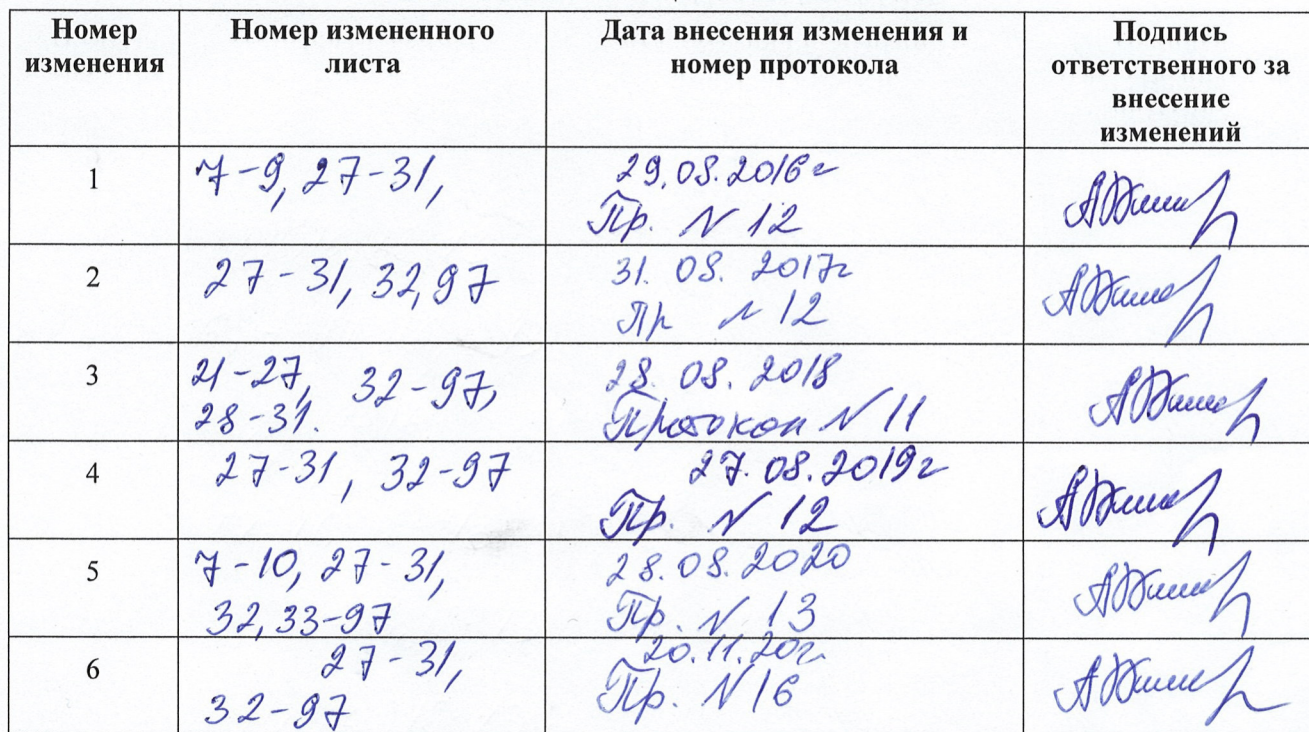 Номер изменения
Номер измененного листа
Дата внесения изменения и номер протокола
Подпись ответственного за внесение изменений
1
7-9, 27-31,
29.08.2016г
Пр. N 12
2
27-31, 32,97
31. 08. 2017г
Пр N 12
3
21-27, 32-97,
28-31.
28. 08. 2018
Протокол N 11
4
27-31, 32-97
27.08.2019г
Пр. N 12
5
7-10, 27-31,
32,33-97
28.08.2020
Пр. N 13
6
27-31,
32-97
20.11.20г.
Пр. N 16